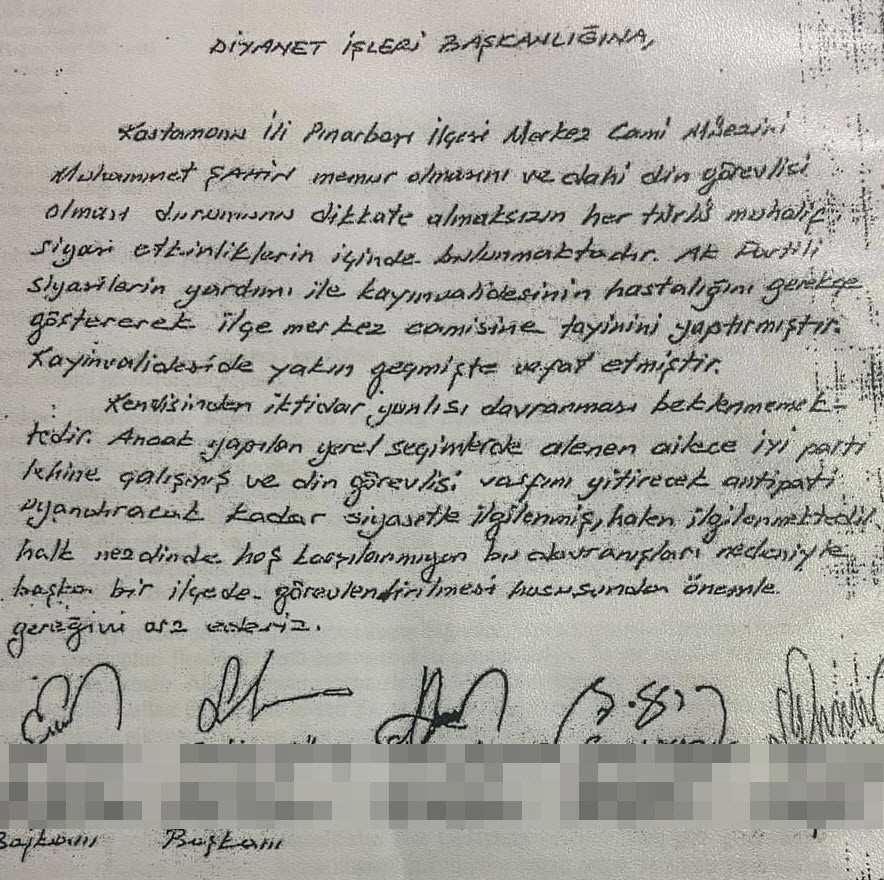 DİYANET İŞLERİ BAŞKANLIĞINA,
Kastamonu İli Pınarbaşı İlçesi Merkez Cami Müezzini
Muhammet ŞAHİN memur olmasını ve dahi din görevlisi
olması durumunu dikkate almaksızın her türlü muhalif
siyasi etkinliklerin içinde bulunmaktadır. AK Partili
siyasilerin yardımı ile kayınvalidesinin hastalığını gerekçe
göstererek ilçe merkez camisine tayinini yaptırmıştır.
Kayınvalideside yakın geçmişte vefat etmiştir.
Kendisinden iktidar yanlısı davranması beklenmemek-
tedir. Ancak yapılan yerel seçimlerde alenen ailece iyi parti
lehine çalışmış ve din görevlisi vasfını yitirecek antipati
uyandıracak kadar siyasetle ilgilenmiş, halen ilgilenmektedir
halk nezdinde hoş karşılanmayan bu davranışları nedeniyle
başka bir ilçede görevlendirilmesi hususundan önemle
gereğini arz ederiz.
Başkanı Başkanı